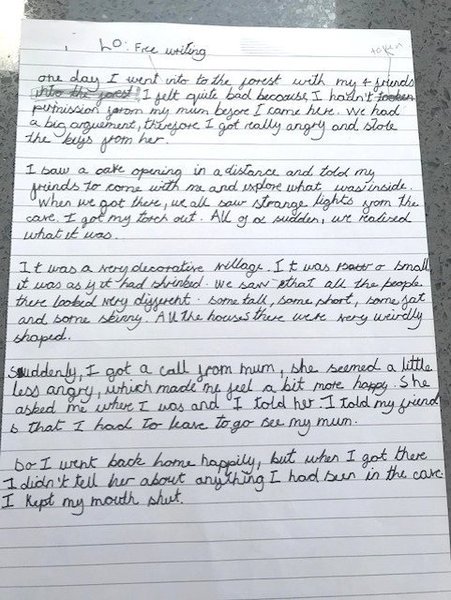 LO: Free writing
token
one day I went into to the forest with my 4 friends
into the forest I felt quite bad because I hadn't tooken
permission from my mum before I came here. We had
a big arguement, therefore I got really angry and stole
the keys from her.
I saw a cave opening in a distance and told my
friends to come with me and explore what was inside.
When we got there, we all saw strange lights from the
cave. I got my torch out. All of a sudden, we realised
what it was.
It was a very decorative village. It was so small,
it was as if it had shrinked. We saw that all the people
there looked very different. some tall, some short, some fat
and some skinny. All the houses there were very weirdly
shaped.
Suddenly, I got a call from mum, she seemed a little
less angry, which made me feel a bit more happy. She
asked me where I was and I told her I told my friend
s that I had to leave to go see my mum.
So I went back home happily, but when I got there
I didn't tell her about anything I had seen in the cave.
I kept my mouth shut.